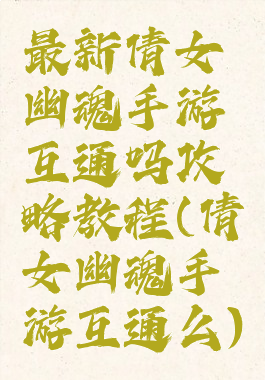 最新倩女
幽魂手游
互通吗攻
略教程(倩
女幽魂手
游互通么)